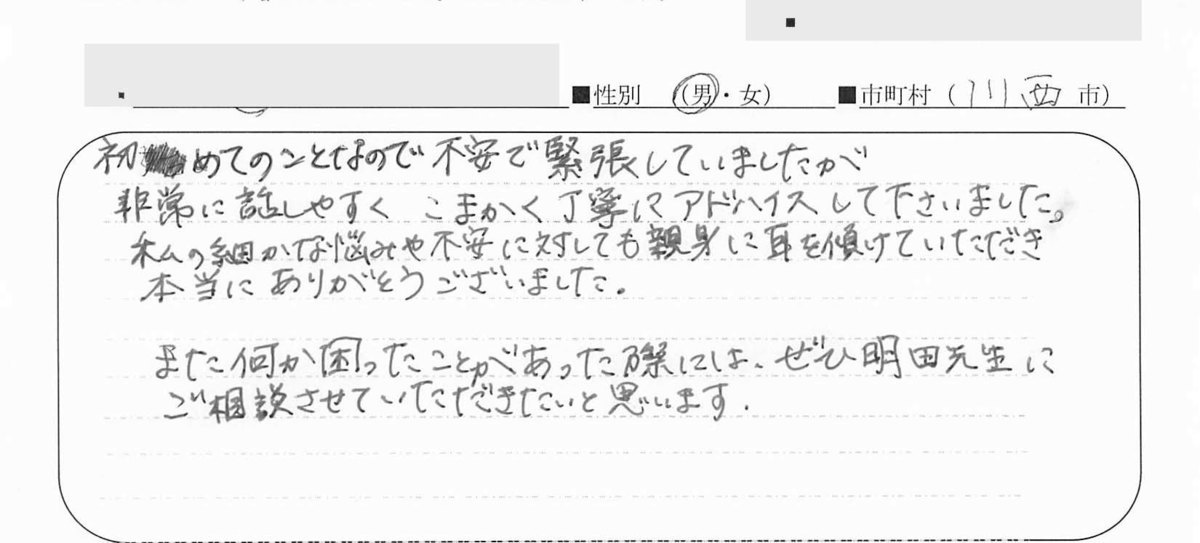 ■性別 (男・女) ■市町村(川西 市)
初めてのことなので不安で緊張していましたが
非常に話しやすく こまかく丁寧にアドバイスして下さいました。
私の細かな悩みや不安に対しても親身に耳を傾けていただき
本当にありがとうございました.
また何か困ったことがあった際には、ぜひ明田先生に
ご相談させていただきたいと思います.